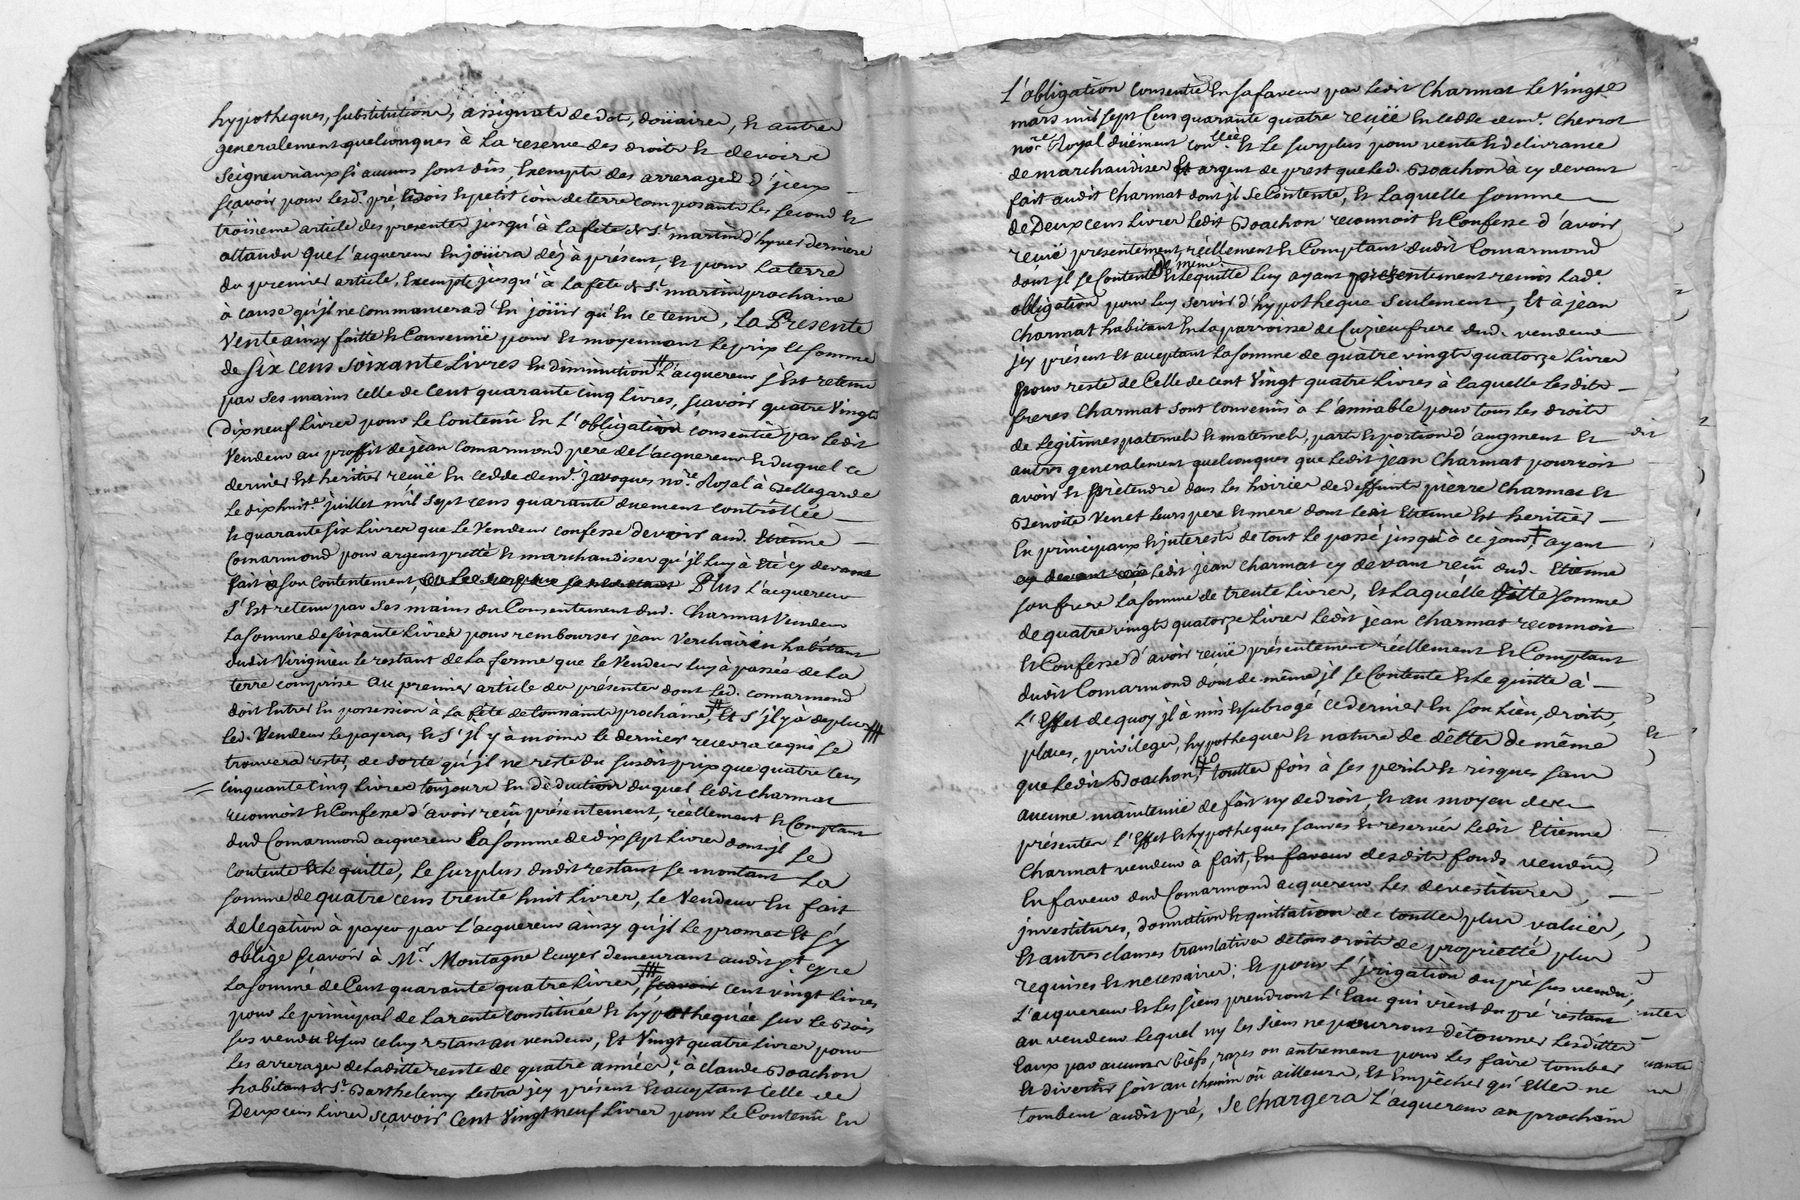 hypotheques, substitutions, assignats de dot, doüaires, et autres
generalement quelconques à La reserve des droits et devoirs
seigneuriaux si aucuns sont dûs, Exempte des arrerages d'jceux
sçavoir pour lesd. pré, Bois et petit coin de terre composants Les second et
troisième article des presentes jusqu'à La fete de St. martin d'hyver derniere
attandu que L'acquereur En joüira dez à présent, et pour La terre
du premier article, Exempte jusqu'à La fete de St. martin prochaine
à cause qu'jl ne commancera d'En joüir qu'En ce tems, La Presente
Vente ainsy faitte et Convenuë pour et moyennant Le prix et somme
de six cens soixante Livres En diminution L'acquereur s'est retenu
par ses mains celle de Cent quarante cinq Livres, sçavoir quatre Vingt
dix neuf Livres pour Le Contenû En L'obligation consentie par Ledit
Vendeur au proffit de jean Comarmond pere de L'acquereur et duquel ce
dernier Est heritier reçuë En cedde de me. javogues no.re Royal à Bellegarde
Le dix huit.e juillet mil sept cens quarante duement controllée
Et quarante six Livres que Le Vendeur confesse devoir aud. Etienne
Comarmond pour argent pretté et marchandises qu'jl Luy à Eté cy devant
fait à son Contentement, Plus L'acquereur
s'Est retenu par ses mains du Consentement dud. Charmat Vendeur
La somme de soixante Livres pour rembourser jean Verchairin habitant
dudit Virignieu le restant de La ferme que le Vendeur Luy à passée de La
terre comprise au premier article des présentes dont Led. comarmond
doit Entrer En possession à La fête de Toussaints prochaine, Et s'jl y à de plus
Led. Vendeur Le payera, et s'jl y à moins le dernier recevra ce qui se
trouvera rester, de sorte qu'jl ne reste du susdit prix que quatre cens
cinquante cinq Livres toujours En déduction duquel Ledit Charmat
reconnoit et Confesse d'avoir reçû présentement, réellement et Comptant
dud Comarmond acquereur La somme de dix sept Livres dont jl se
Contente et Le quitte, Le surplus dudit restant se montant La
somme de quatre cens trente huit Livres, Le Vendeur En fait
delegation à payer par L'acquereur ainsy qu'jl Le promet et s'y
oblige sçavoir à Mr. Montagne Ecuyer demeurant audit St. cyre
La somme de Cent quarante quatre Livres, sçavoir cent vingt Livres
pour Le principal de La rente constituée et hypothequée sur Le Bois
sus vendu et sur celuy restant au vendeur, Et Vingt quatre Livres pour
Les arrerages de Laditte rente de quatre années; à claude Boachon
habitant de St. Barthelemy Lestra jcy présent et acceptant Celle de
Deux cens Livres sçavoir Cent Vingt neuf Livres pour Le Contenû En
L'obligation Consentie En sa faveur par Ledit Charmat Le Vingt.e
mars mil sept Cens quarante quatre reçuë En cedde de me. Chevrot
no.re Royal duëment con.llée Et Le surplus pour vente et delivrance
de marchandises Et argent de prest que Led. Boachon à cy devant
fait audit Charmat dont jl se Contente, Et Laquelle somme
de Deux cens Livres Ledit Boachon reconnoit et Confesse d'avoir
reçuë présentement, réellement et Comptant dudit Comarmond
dont jl se Contente de même et Le quitte Luy ayant présentement remis Lad.e
obligation pour Luy servir d'hypotheque seulement, Et à jean
Charmat habitant En La parroisse de Cuzieu frere dud. vendeur
jcy présent et acceptant La somme de quatre vingt quatorze Livres
pour reste de Celle de cent Vingt quatre Livres à laquelle Lesdits
freres Charmat sont convenûs à L'amiable pour tous Les droits
de Legitimes paternels et maternels, parts et portion d'augment et
autres generalement quelconques que Ledit jean Charmat pourroit
avoir et prétendre dans Les hoiries de deffunts pierre Charmat et
Benoite Venet Leurs pere et mere dont Ledit Etienne Est heritier
En principaux et interests de tout Le passé jusqu'à ce jour, ayant
Ledit jean Charmat cy devant reçû dud. Etienne
son frere La somme de trente Livres, et Laquelle ditte somme
de quatre vingt quatorze Livres Ledit jean Charmat reconnoit
et Confesse d'avoir reçuë présentement réellement et Comptant
dudit Comarmond dont de même jl se Contente et Le quitte à
L'Effet de quoy jl à mis et subrogé ce dernier En son Lieu, droits,
places, privileges, hypotheques et nature de déttes de même
que Ledit Boachon, touttes fois à ses perils et risques sans
aucune maintenuë de fait ny de droit, et au moyen des
présentes L'Effet et hypotheques sauves et reservées Ledit Etienne
Charmat vendeur à fait, En faveur desdits fonds vendûs,
En faveur dud Comarmond acquereur Les devestitures,
jnvestitures, donnation et quittation de touttes plus valües,
Et autres clauses translatives de tous droits de proprietté plus
requises et necessaires; Et pour L'jrigation du pré sus vendu,
L'acquereur et Les siens prendront L'Eau qui vient du pré restant
au vendeur Lequel ny Les siens ne pourront détourner Lesdittes
Eaux par aucuns biefs, razes ou autrement pour Les faire tomber
Et divertir soit au chemin où ailleurs, et Empêcher qu'Elles ne
tombent audit pré, se chargera L'acquereur au prochain